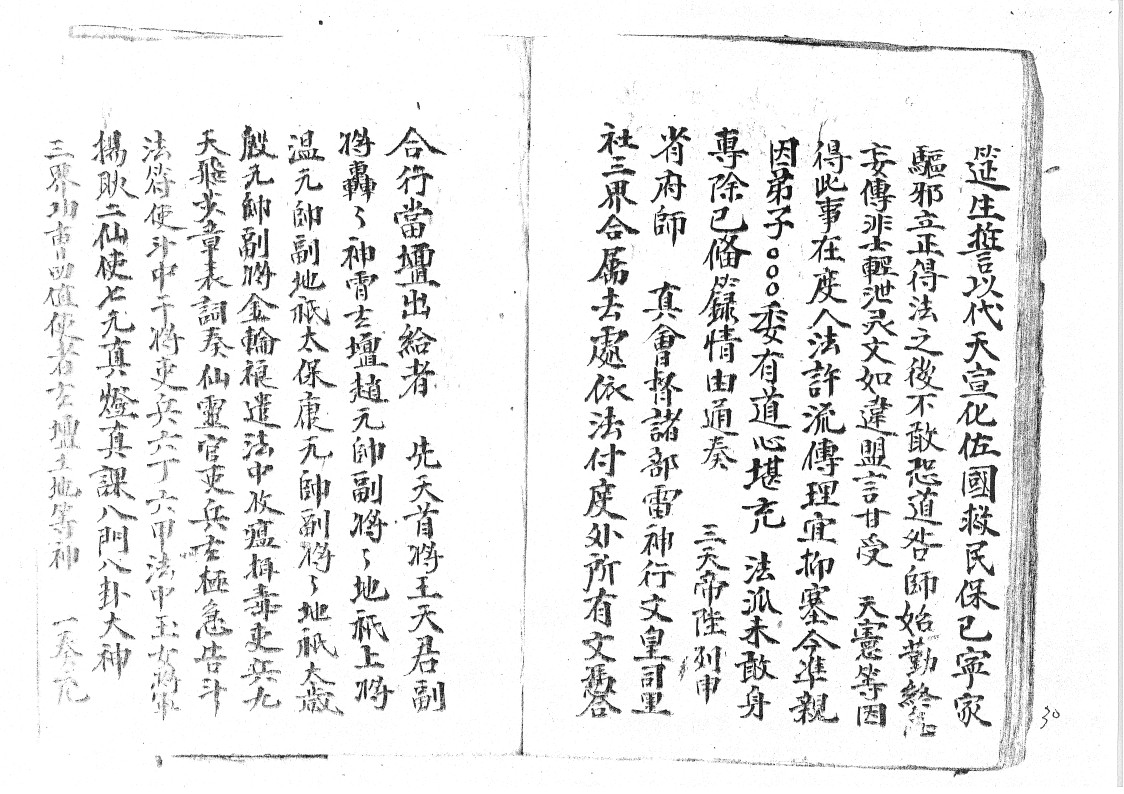 筵生誓言以代天宣化佐國救民保己寧家
驅邪立正得法之後不敢怨道咎師始勤終怠
妄傳非士輕泄灵文如違盟言甘受　天憲等因
得此事在度人法許流傳理宜抑塞今准親
因弟子○○○委有道心堪充　法派未敢身
專除已俻籙情由通奏　三天帝陛列申
省府師　真會督諸部雷神行文皇司里
社三界合属去處依法付度外所有文憑合
合行當壇出給者　先天首將王天君副
將轟〻神霄玄壇趙元帥副將〻地祇上將
温元帥副地祇太保康元帥副將〻地祇太歲
殷元帥副將金輪禳遣法中收瘟攝毒吏兵九
天飛步章表詞奏仙靈官吏兵玄極急告斗
法符使斗中干將吏兵六丁六甲法中玉女將軍
楊耿二仙使七元真燈真課八門八卦大神
三界功曹四值使者玄壇土地等神　一奏元
30